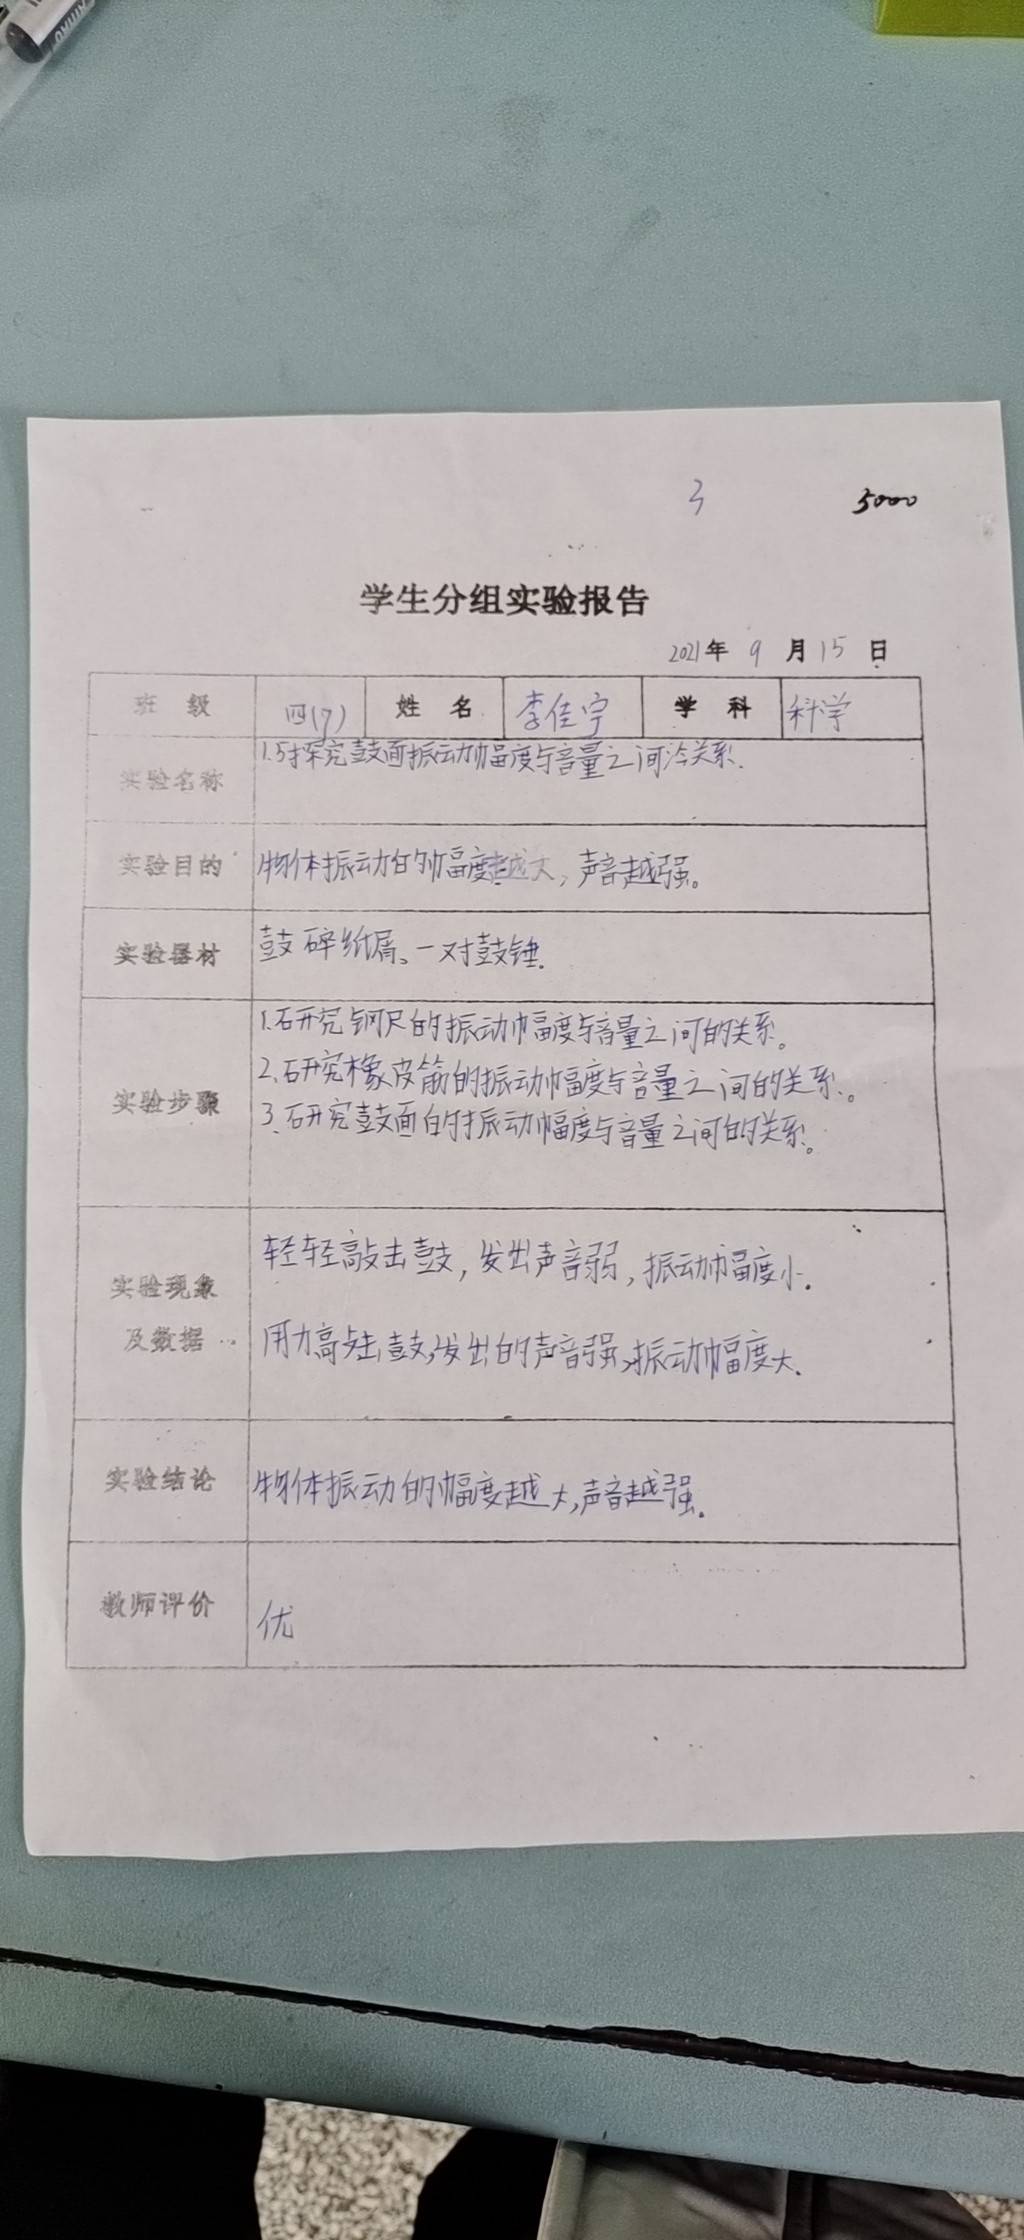 3 5000
学生分组实验报告
2021年 9 月 15 日
班 级 四(7) 姓 名 李佳宇 学 科 科学
实验名称 1.5探究鼓面振动幅度与音量之间关系.
实验目的 物体振动的幅度越大，声音越强。
实验器材 鼓 碎纸屑、一对鼓锤.
实验步骤
1.研究钢尺的振动幅度与音量之间的关系。
2.研究橡皮筋的振动幅度与音量之间的关系.。
3.研究鼓面的振动幅度与音量之间的关系。
实验现象
及数据
轻轻敲击鼓，发出声音弱，振动幅度小.
用力敲击鼓,发出的声音强,振动幅度大.
实验结论 物体振动的幅度越大,声音越强.
教师评价 优